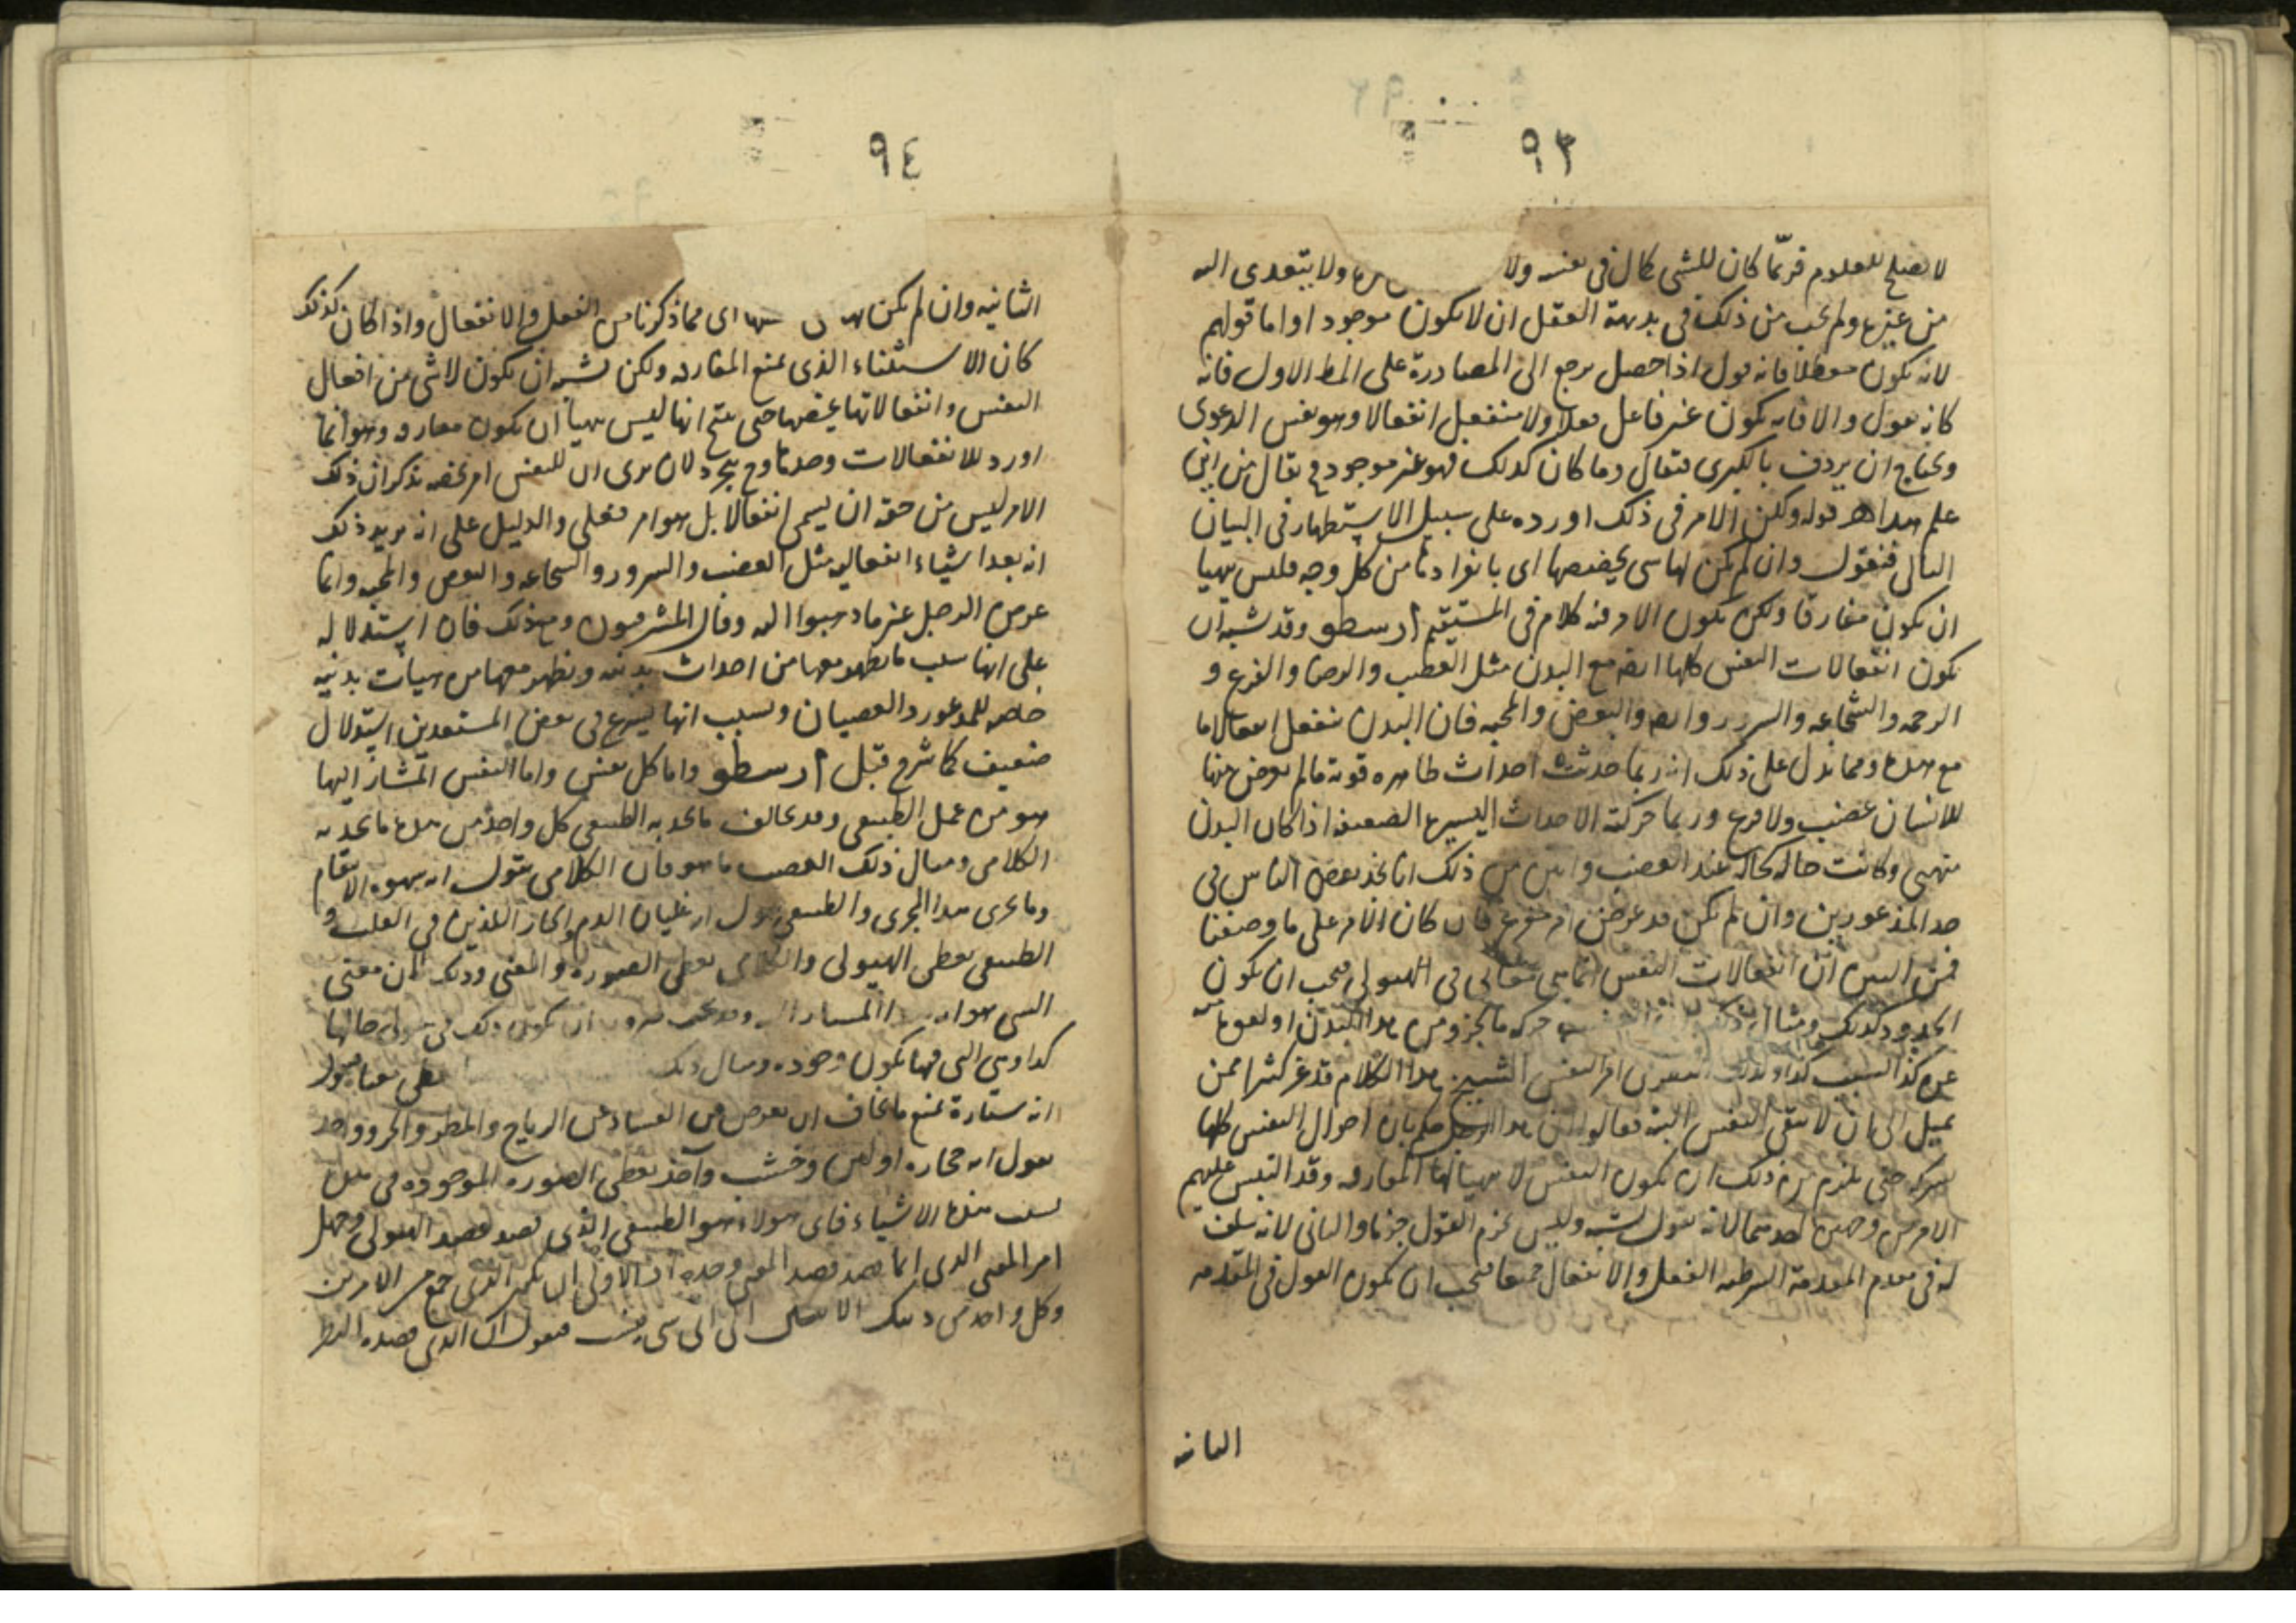 ٩٣
لا يصلح للعلوم فربّما كان للشئ كمال فى نفسه ولا ولا يتعدى اليه
من غيره ولم يجب من ذلك فى بديهة العقل ان لا يكون موجودا واما قولهم
لانه يكون معطلا فانه قول اذا حصل يرجع الى المصادرة على المط الاول فانه
كانه يقول والا فانه يكون غير فاعل فعلا ولا منفعل انفعالا وهو نفس الدعوى
ويحتاج ان يردف بالكبرى فيقال وما كان كذلك فهو غير موجود ثم يقال من اين
علم هذا قوله ولكن الامر فى ذلك اورده على سبيل الاستظهار فى البيان
التالى فنقول وان لم يكن لها شى يخصها اى بانفرادها من كل وجه فليس يتهيا
ان يكون مفارقا ولكن يكون الامر فيه كلام فى المستقيم ارسطو وقد يشبه ان
يكون انفعالات النفس كلها ايضا مع البدن مثل الغضب والرضا والفزع و
الرحمه والشجاعه والسرور وايضا والبغض والمحبه فان البدن ينفعل انفعالا ما
مع هذه ومما يدل على ذلك انه ربما حدثت احداث ظاهره قوية ما لم يعرض منها
للانسان غضب ولا فزع وربما حركته الاحداث اليسيره الضعيفه اذا كان البدن
متهيى وكانت حاله كحاله عند الغضب وابين من ذلك انا نجد بعض الناس فى
حد المذعورين وان لم يكن قد عرض امر مفزع فان كان الامر على ما وصفنا
فمن البين ان انفعالات النفس انما هى معانى فى الهيولى فيجب ان يكون
الحدود كذلك ومثال ذلك ان الغضب حركه ما لجزو من هذا البدن او لقوة منه
عن كذا السبب كذا ولذلك امر النفس الشيخ هذا الكلام قد غر كثيرا ممن
يميل الى ان لا تبقى النفس البته فقالوا ان هذا الرجل حكم بان احوال النفس كلها
يشركه حتى يلزم من ذلك ان يكون النفس لا يتهيا لها المفارقه وقد التبس عليهم
الامر من وجهين احدهما لانه يقول يشبه وليس يجزم القول جزما والثانى لانه سلف
له فى مقدم المقدمة الشرطيه الفعل والانفعال جميعا فيجب ان يكون القول فى المقدمه
الثانيه
٩٤
الثانيه وان لم يكن اى مما ذكرنا من الفعل والانفعال واذا كان كذلك
كان الاستثناء الذى يمنع المفارقه ولكن يشبه ان يكون لا شى من افعال
النفس وانفعالاتها يخصها حتى ينتج انها ليس يتهيا ان يكون مفارقه وهو انما
اورد الانفعالات وحدها وح يجرد لان يرى ان للنفس امر يخصه يذكر ان ذلك
الامر ليس من حقه ان يسمى انفعالا بل هو امر فعلى والدليل على انه يريد ذلك
انه يعد اشياء انفعاليه مثل الغضب والسرور والشجاعه والبغض والمحبه وانما
غرض الرجل غير ما ذهبوا اليه وقال المشرقيون ومع ذلك فان استدلاله
على انها بسبب ما يظهر معها من احداث بدنيه ويظهر معها من هيات بدنيه
خاصه للمذعور والغضبان وبسبب انها يسرع فى بعض المستعدين استدلال
ضعيف كما شرح قبل ارسطو واما كل نفس واما النفس المشار اليها
هو من عمل الطبيعى وقد يخالف ما يحد به الطبيعى كل واحد من هذه ما يحد به
الكلامى ومثال ذلك الغضب ما هو فان الكلامى يقول انه شهوة الانتقام
وما يجرى هذا المجرى والطبيعى يقول انه غليان الدم والحار اللذين فى القلب و
الطبيعى يعطى الهيولى والكلامى يعطى الصوره والمعنى وذلك ان معنى
الشى هو المشار اليه وقد يجب ضروره ان يكون ذلك فى هيولى حالها
كذا وهى التى فيها يكون وجوده ومثال ذلك يعطى معنا فيقول
انه ستارة يمنع ما يخاف ان يعرض من الفساد عن الرياح والمطر والحر وواحد
يقول انه حجاره او لبن وخشب وآخر يعطى الصوره الموجوده فى هذه
بسبب هذه الاشياء فاى هولاء هو الطبيعى الذى قصد قصد الهيولى وجهل
امر المعنى الذى انما قصد قصد المعنى وحده او الاولى ان يكون الذى جمع من الامرين
وكل واحد من ذينك الاى شى ينسب فيقول ان الذى قصده النظر